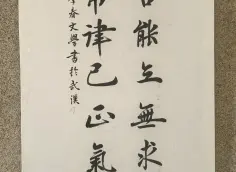 能立無求
律己正氣
春文學書於武漢